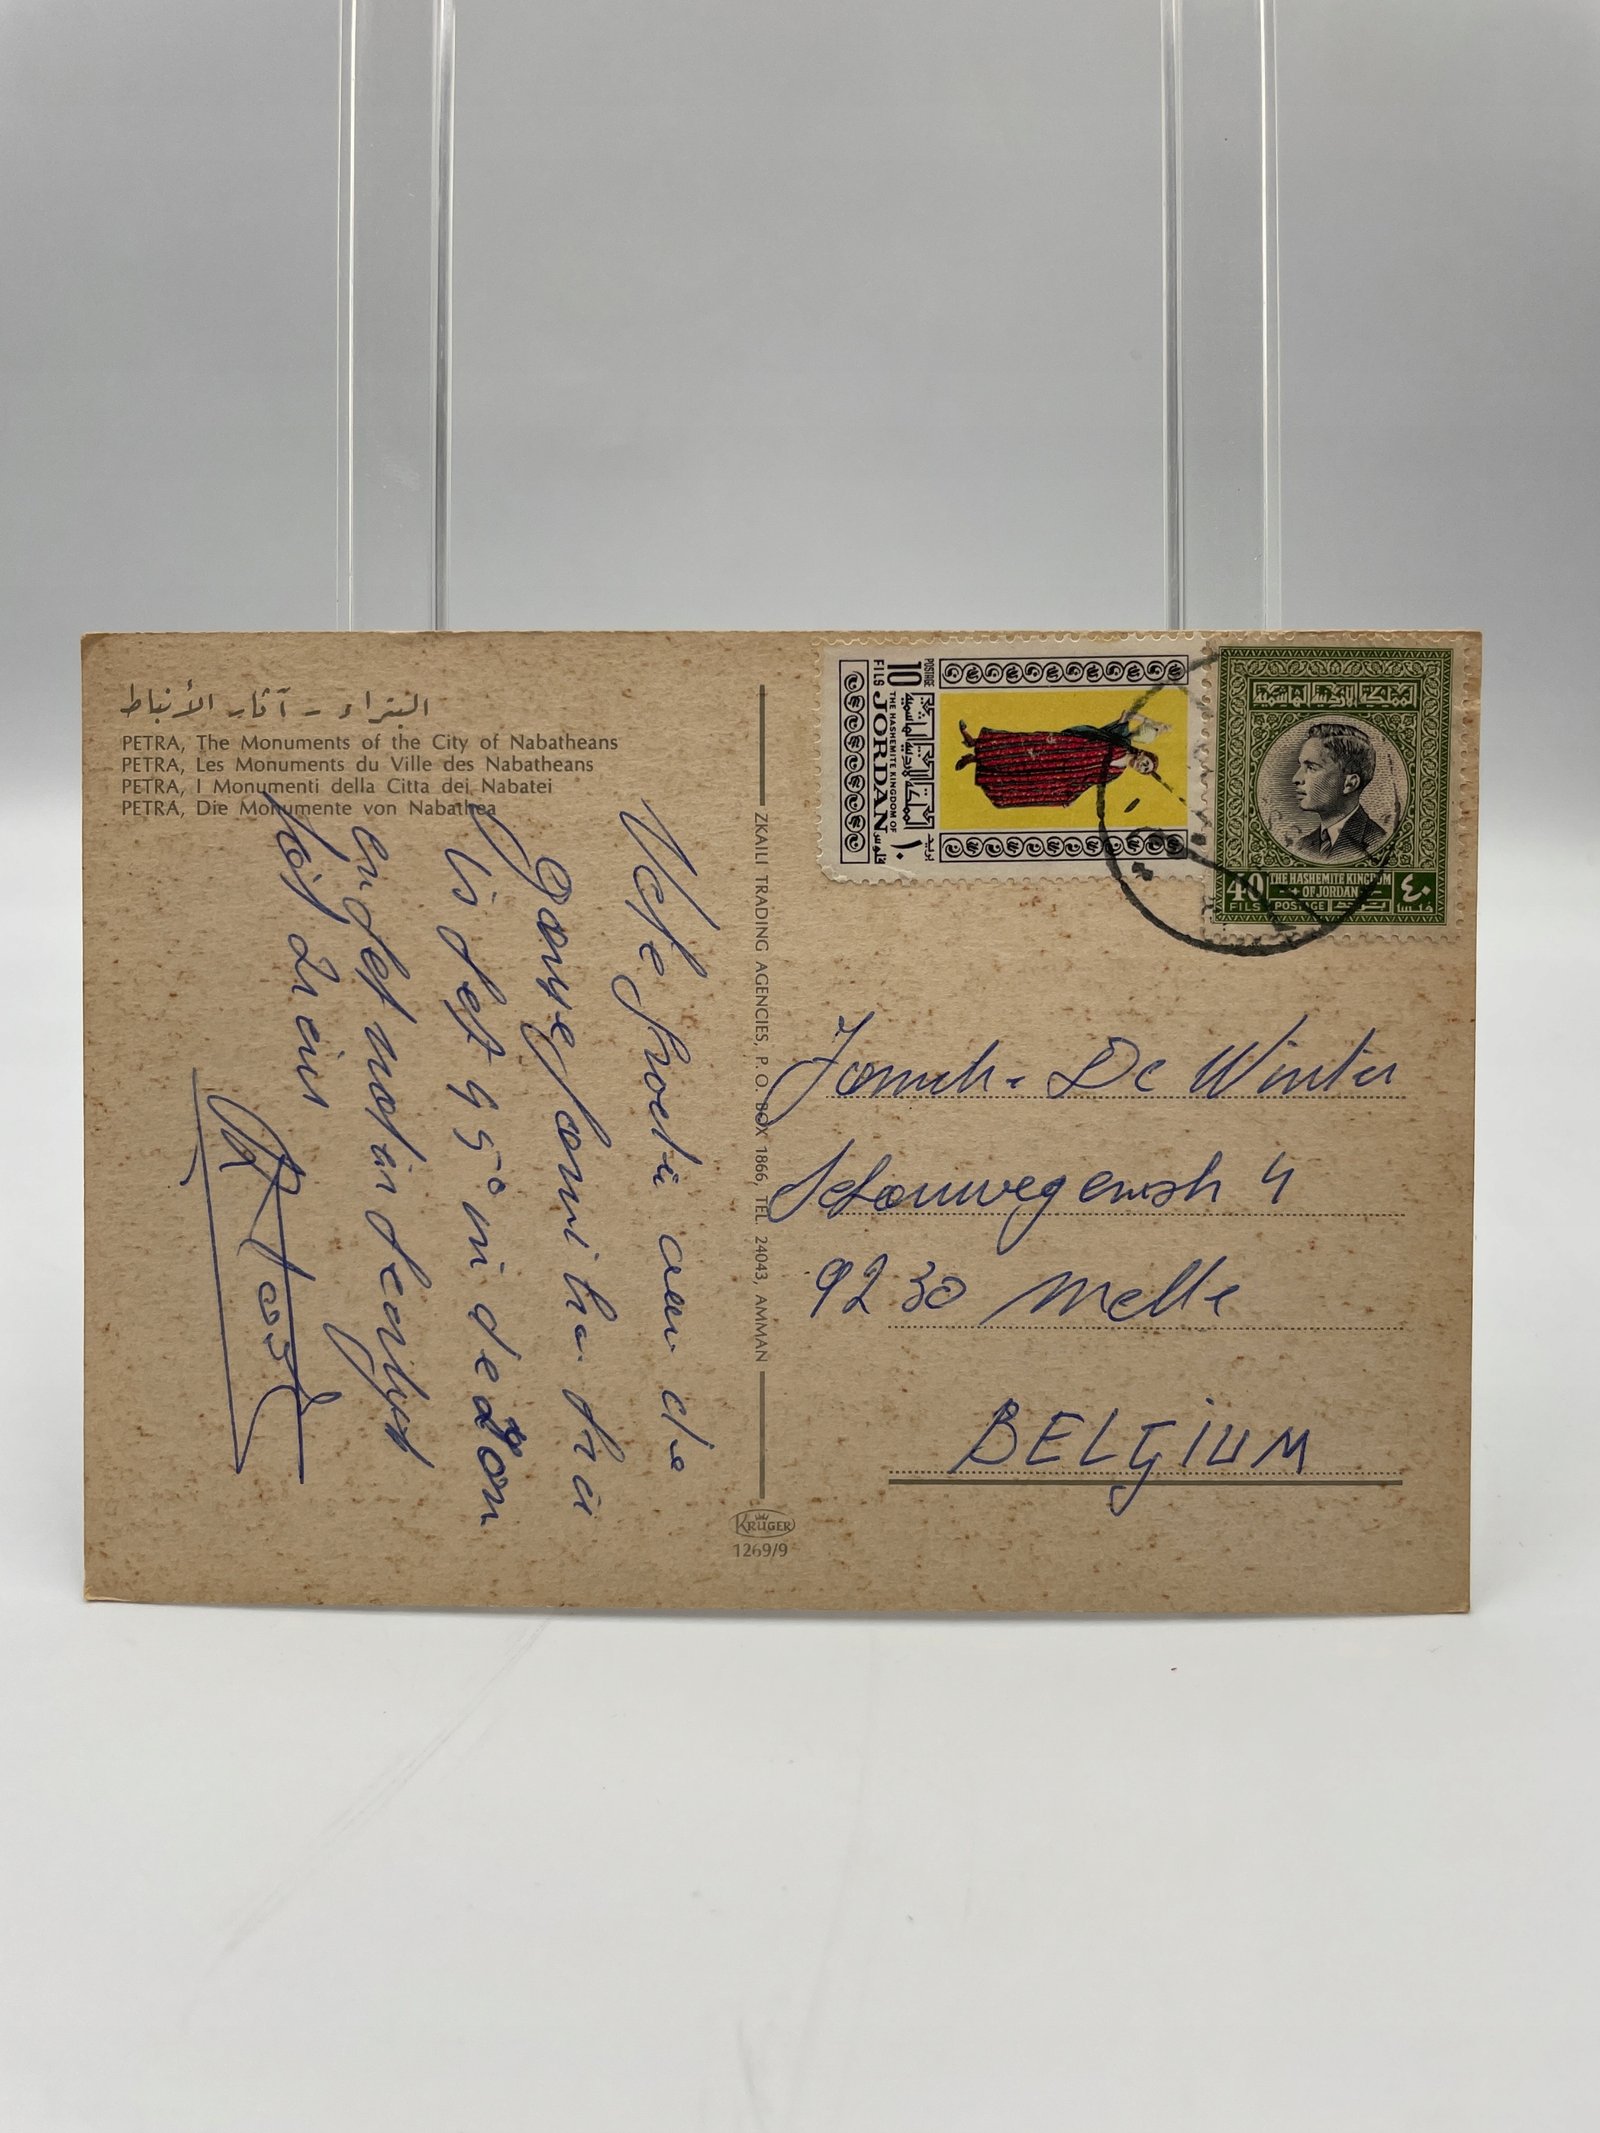 البتراء - آثار الأنباط
PETRA, The Monuments of the City of Nabatheans
PETRA, Les Monuments du Ville des Nabatheans
PETRA, I Monumenti della Citta dei Nabatei
PETRA, Die Monumente von Nabathea
Vele groeten aan de
ganse familie. hier
is het 45° in de zon
en het water is heerlijk
tot ziens
ZKAILI TRADING AGENCIES, P.O. BOX 1866, TEL. 24043, AMMAN
KRÜGER
1269/9
POSTAGE 10 FILS
بريد ١٠ فلوس
المملكة الأردنية الهاشمية
THE HASHEMITE KINGDOM OF
JORDAN
المملكة الأردنية الهاشمية
THE HASHEMITE KINGDOM
OF JORDAN
40 FILS POSTAGE بريد ٤٠ فلسا
De Winter
4
9230 Melle
BELGIUM